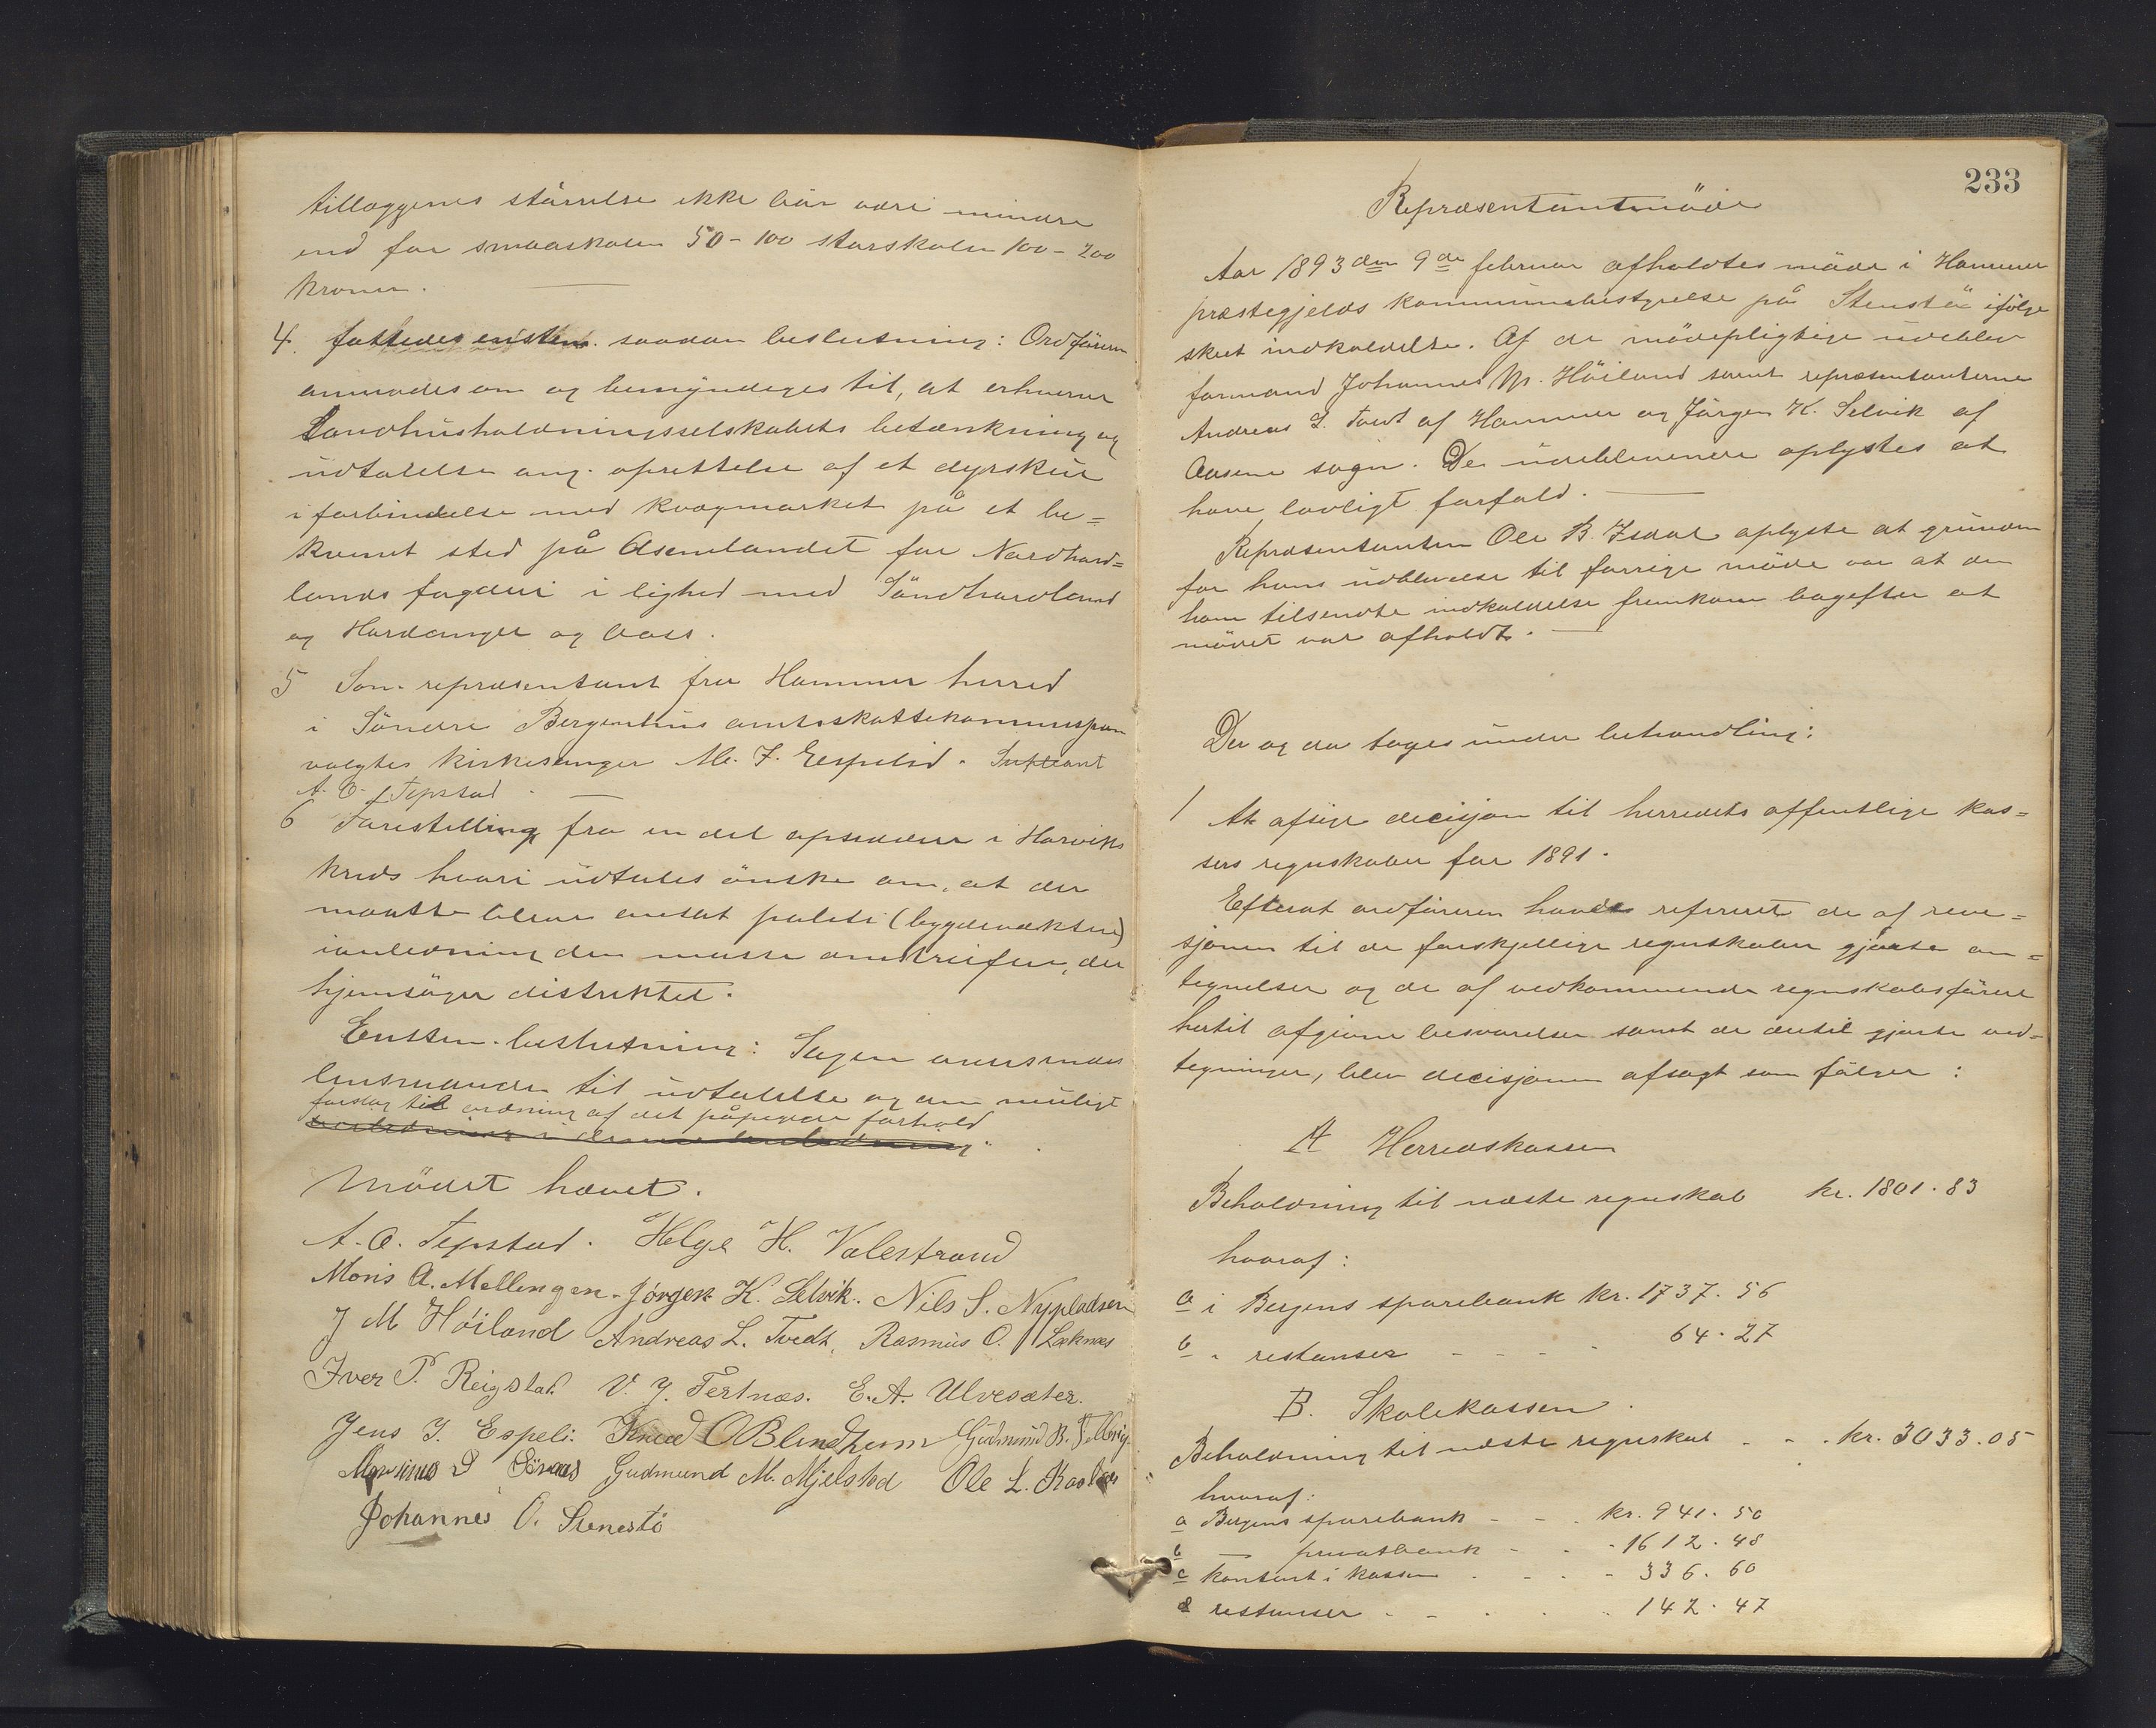 tillæggenes störrelse ikke bör være mindre
end for smaaskolen 50 - 100 storskolen 100 - 200
kroner.
4. fattedes enstem. saadan beslutning: Ordföreren
anmodes om og bemyndiges til, at erhverve
Landhusholdningsselskabets betænkning og
udtalelse ang. oprettelse af et dyrskue
i forbindelse med kvægmarket på et be=
kvemt sted på Asenelandet for Nordhord=
lands fogderi i lighed med Söndhordland
og Hardanger og Voss.
5 Som repræsentant fra Hammer herred
i Söndre Bergenhus amtsskattekommission
valgtes kirkesanger M. J. Espelid. Supleant
A. O. Tepstad.
6 Forestilling fra en del opsiddere i Horviks
kreds hvori udtales önske om, at der
maatte blive ansat politi (bygdevægtere)
i anledning den masse omstreifere, der
hjemsöger distriktet.
Enstem. beslutning: Sagen oversendes
lensmanden til udtalelse og om muligt
forslag til ordning af det påpegede forhold
Mödet hævet.
A. O. Tepstad. Helge H. Valestrand
Mons A. Mellingen. Jörgen K. Selvik. Nils S. Nypladsen
J M Höiland Andreas L. Tvedt, Rasmus O. Læknes
Iver P. Reigstad V. J. Tertnæs. E. A. Ulvesæter.
Jens J. Espeli. Knud O Blindheim Gudmund B.
Gudmund M. Mjelstad Ole L.
Johannes O. Stenestö
233
Repræsentantmöde
Aar 1893 den 9de februar afholdtes möde i Hammer
præstegjelds kommunebestyrelse på Stenstö ifölge
skeet indkaldelse. Af de mödepligtige udeblev
formand Johannes M. Höiland samt repræsentanterne
Andreas L. Tvedt af Hammer og Jörgen K. Selvik af
Aasene sogn. De udeblevende oplystes at
have lovligt forfald.
Repræsentanten Ole B. Isdal oplyste at grunden
for hans udeblivelse til forrige möde var at den
ham tilsendte indkaldelse fremkom bagefter at
mödet var afholdt.
Der og da toges under behandling:
1 At afsige decisjon til herredets offentlige kas=
sers regnskaber for 1891.
Efterat ordföreren havde refereret de af revi=
sjonen til de forskjellige regnskaber gjorte an=
tegnelser og de af vedkommende regnskabsförere
hertil afgivne besvarelser samt de dertil gjorte ved=
tegninger, blev decisjonen afsagt som fölger:
A Herredskassen
Beholdning til næste regnskab kr. 1801.83
hvoraf:
a i Bergens sparebank kr. 1737.56
b " restanser - - - - 64.27
B. Skolekassen.
Beholdning til næste regnskab - - - kr. 3033.05
hvoraf:
a Bergens sparebank - - - kr. 941.50
b — privatbank - - - 1612.48
c kontant i kassen - - - 336.60
d restanser - - - - - 142.47